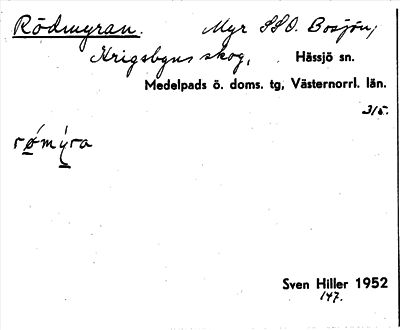 Rödmyran. Myr SSO. Bosjön,
Krigsbyns skog, Hässjö sn.
Medelpads ö. doms. tg, Västernorrl. län.
3/5.
rǿmýra
Sven Hiller 1952
147.